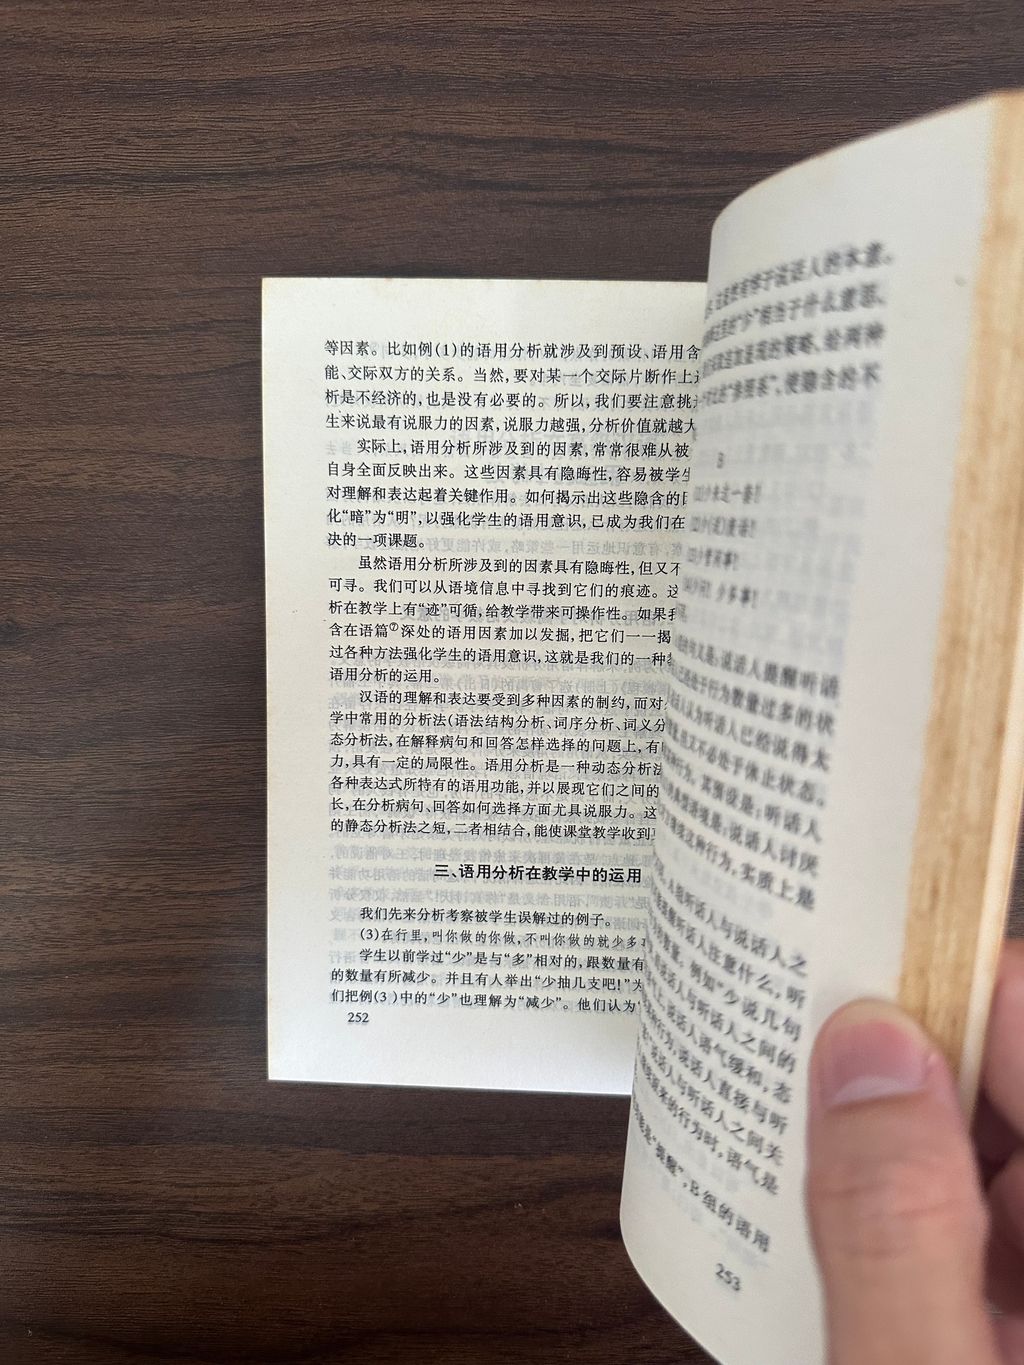 等因素。比如例(1)的语用分析就涉及到预设、语用含
能、交际双方的关系。当然,要对某一个交际片断作上
析是不经济的,也是没有必要的。所以,我们要注意挑
生来说最有说服力的因素,说服力越强,分析价值就越大
实际上,语用分析所涉及到的因素,常常很难从被
自身全面反映出来。这些因素具有隐晦性,容易被学生
对理解和表达起着关键作用。如何揭示出这些隐含的
化“暗”为“明”,以强化学生的语用意识,已成为我们在
决的一项课题。
虽然语用分析所涉及到的因素具有隐晦性,但又不
可寻。我们可以从语境信息中寻找到它们的痕迹。这
析在教学上有“迹”可循,给教学带来可操作性。如果
含在语篇⑦深处的语用因素加以发掘,把它们一一揭
过各种方法强化学生的语用意识,这就是我们的一种
语用分析的运用。
汉语的理解和表达要受到多种因素的制约,而对
学中常用的分析法(语法结构分析、词序分析、词义分
态分析法,在解释病句和回答怎样选择的问题上,有
力,具有一定的局限性。语用分析是一种动态分析法
各种表达式所特有的语用功能,并以展现它们之间的
长,在分析病句、回答如何选择方面尤具说服力。这
的静态分析法之短,二者相结合,能使课堂教学收到
三、语用分析在教学中的运用
我们先来分析考察被学生误解过的例子。
(3)在行里,叫你做的你做,不叫你做的就少多
学生以前学过“少”是与“多”相对的,跟数量有
的数量有所减少。并且有人举出“少抽几支吧!”为
们把例(3)中的“少”也理解为“减少”。他们认为
252
有悖于说话人的本意。
“少”相当于什么意思、
发现的策略、给两种
“参照系”,使隐含的不
B
少来这一套!
少废话!
少管闲事!
少多事!
又是:说话人提醒听话
处于行为数量过多的状
认为听话人已经说得太
但又不必处于休止状态。
行为。其预设是:听话人
语境是:说话人讨厌
继续这种行为,实质上是
听话人与说话人之
听话人注意什么,听
数量。例如“少说几句
与听话人之间的
说话人语气缓和,态
行为,说话人直接与听
说话人与听话人之间关
原来的行为时,语气是
“提醒”,B组的语用
253